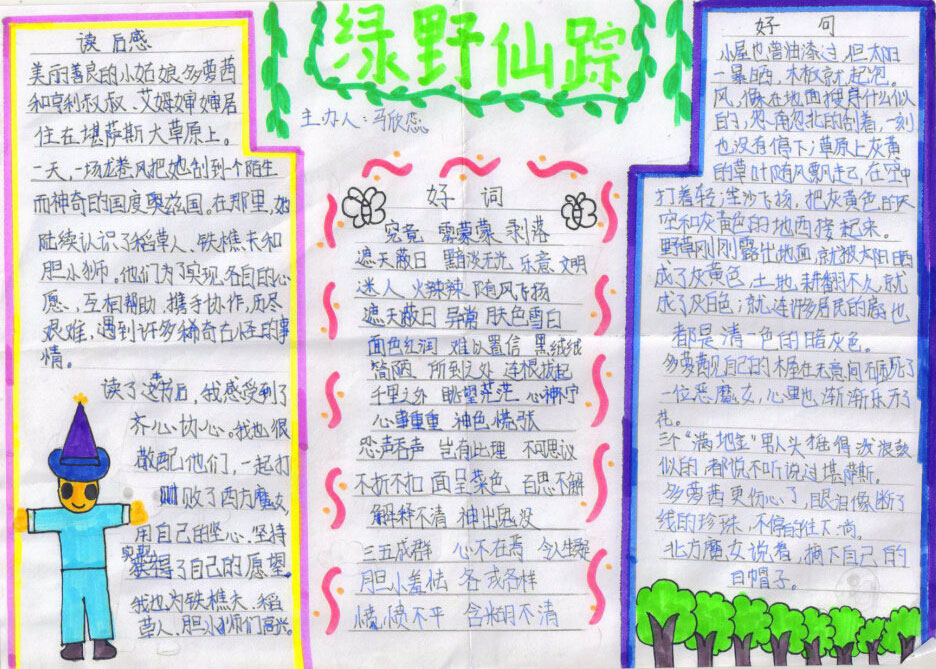 绿野仙踪
主办人：马欣恋
读后感
美丽善良的小姑娘多萝茜
和亨利叔叔、艾姆婶婶居
住在堪萨斯大草原上。
一天,一场龙卷风把她刮到个陌生
而神奇的国度奥兹国。在那里,她
陆续认识了稻草人、铁樵夫和
胆小狮。他们为了实现各自的心
愿、互相帮助、携手协作,历尽
艰难,遇到许多稀奇古怪的事
情。
读了这书后,我感受到了
齐心协心。我也很
敬配他们,一起打
败了西方魔女,
用自己的坚心、坚持
实现了自己的愿望。
我也为铁樵夫、稻
草人、胆小狮们高兴。
好词
究竟 雾蒙蒙 剥落
遮天蔽日 黯淡无光 乐意 文明
迷人 火辣辣 随风飞扬
遮天蔽日 异常 肤色雪白
面色红润 难以置信 黑绒绒
简陋 所到之处 连根拔起
千里之外 眺望茫茫 心神宁
心事重重 神色慌张
忍声吞声 岂有此理 不可思议
不折不扣 面呈菜色 百思不解
解释不清 神出鬼没
三五成群 心不在焉 令人生疑
胆小羞怯 各式各样
愤愤不平 含糊不清
好句
小屋也曾油漆过,但太阳
一暴晒,木板就起泡。
风,像在地面搜寻什么似
的,忽南忽北的刮着,一刻
也没有停下;草原上灰黄
的草叶随风飘起,在空中
打着转;尘沙飞扬,把灰黄色的天
空和灰黄色的地面接起来。
野草刚刚露出地面,就被太阳晒
成了灰黄色,土地,耕翻不久,就
成了灰白色;就连许多居民的肩,也
都是清一色的暗灰色。
多萝茜见自己的木屋在无意间砸死了
一位恶魔女,心里也渐渐乐开了
花。
三个“满地坐”男人头摇得泼浪鼓
似的,都说不听说过堪萨斯。
多萝茜更伤心了,眼泪像断了
线的珍珠,不停的往下淌。
北方魔女说着,摘下自己的
白帽子。